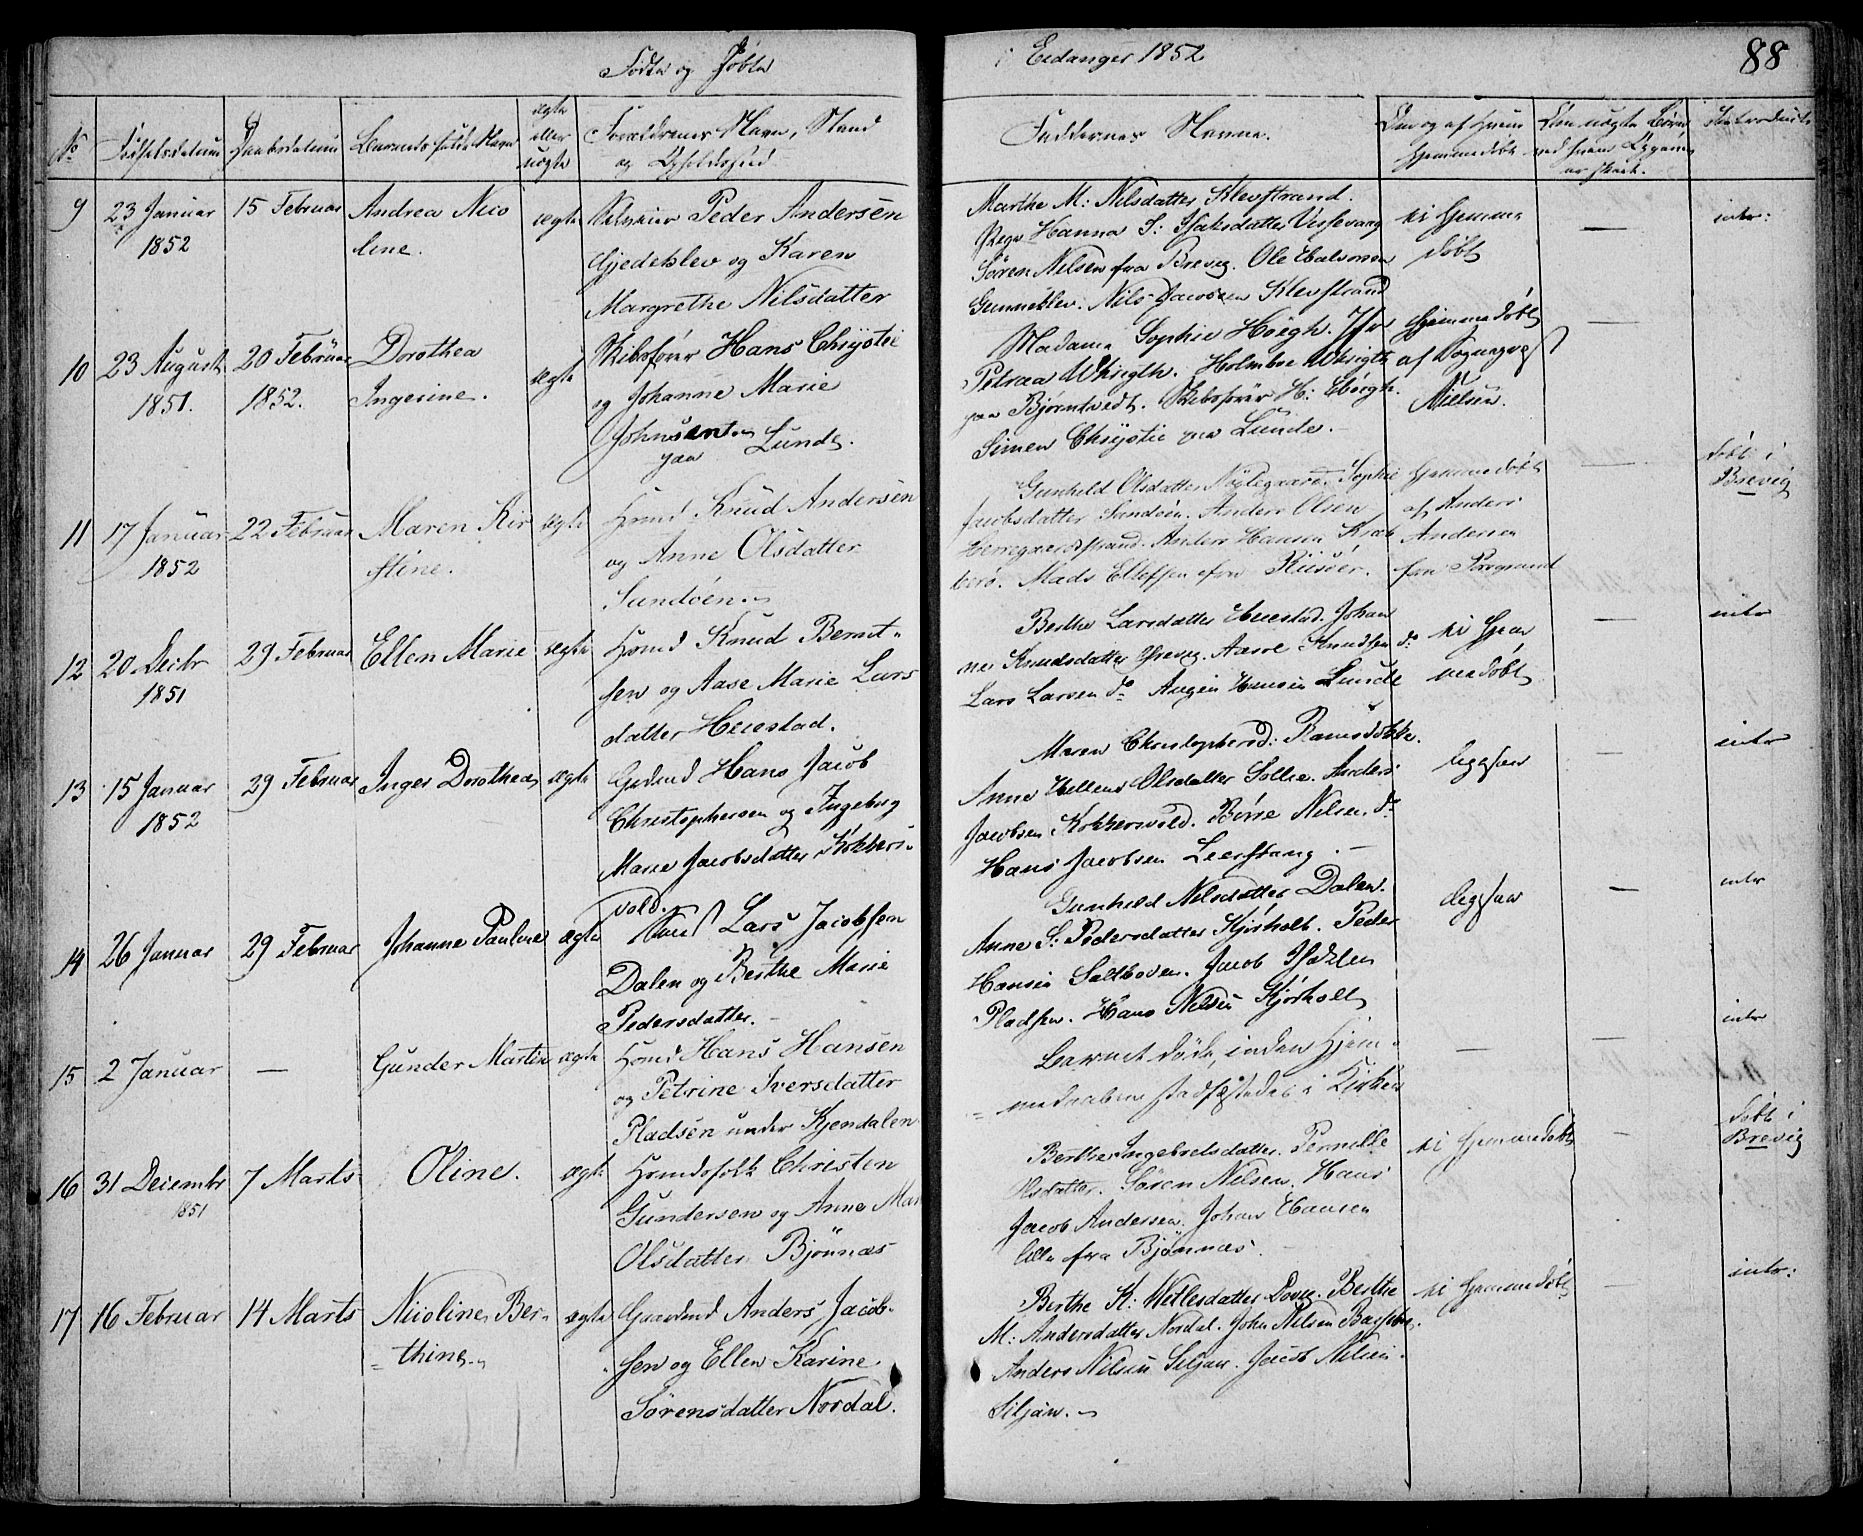 Fødte og Døbte
i Eidanger 1852
88
No
Fødselsdatum
Daabsdatum
Barnets fulde Navn
ægte
eller
uægte
Forældrenes Navn, Stand
og Opholdssted
Faddernes Navne.
Om og af hvem
hjemmedøbt
9
23 Januar
1852
15 Februar
Andrea Nico
line.
ægte
Peder Andersen
Gjedeklev og Karen
Margrethe Nilsdatter
Marthe M: Nilsdatter Klevstrand.
Pige Hanna S: Isaksdatter
Søren Nilsen fra Brevig. Ole Halvorsen
Gunneklev. Nils Jacobsen Klevstrand
ei hjemme
døbt
—
intr:
10
23 August
1851.
20 Februar
1852.
Dorothea
Ingerine.
ægte
Skibsfører Hans Chrystie
og Johanne Marie
Johnsen
paa Lunde.
Madame Sophie Høegh. Jfr
Petræa Whrigth. Holmboe Whrigth
paa Bjørntvedt. Skibsfører H: Høegh.
Simen Chrystie paa Lunde.
hjemmedøbt
af Sognepræst
Nielsen.
—
11
17 Januar
1852
22 Februar
Maren Kir
stine.
ægte
Hmd Knud Andersen
og Anne Olsdatter
Sandøen.
Gunhild Olsdatter Nøklegaard. Sophie
Jacobsdatter Sandøen. Anders Olsen
Herregaardsstrand. Anders Hansen Krab
berø. Mads Ellefsen fra Riisøer.
hjemmedøbt
af Anders
Andersen
fra Porsgrund
—
døbt i
Brevig
12
20 Decbr
1851
29 Februar
Ellen Marie
ægte
Hmd Knud Bernt-
sen og Aase Marie Lars
datter Heiestad.
Berthe Larsdatter Heiestad. Johan
ne Knudsdatter Aasse Knudsen do
Lars Larsen do Hansen Lunde
ei hjem
medøbt
—
intr
13
15 Januar
1852
29 Februar
Inger Dorothea
ægte
Gdmd Hans Jacob
Christophersen og Ingeborg
Marie Jacobsdatter Kokkers-
vold.
Maren Christophersd:
Anne Hellene Olsdatter Sollie. Anders
Jacobsen Kokkersvold. Børre Nilsen do
Hans Jacobsen Leerstang.
ligesaa
—
intr
14
26 Januar
29 Februar
Johanne Pauline
ægte
Lars Jacobsen
Dalen og Berthe Marie
Pedersdatter.
Gunhild Nilsdatter Dalen.
Anne S: Pedersdatter Kjørholt. Peder
Hansen Saltboden. Jacob
Pladsen. Hans Nilsen Kjørholt
ligesaa
—
intr
15
2 Januar
—
Gunder Martin
ægte
Hmd Hans Hansen
og Petrine Iversdatter
Pladsen under Kjendalen
Barnet døde, inden Hjem-
medaaben stadfæstedes i Kirken
—
—
intr
16
31 Decembr
1851
7 Marts
Oline.
ægte
Hmdsfolk Christen
Gundersen og Anne Mar
Olsdatter Bjønnæs
Berthe Ingebretsdatter. Pernille
Olsdatter. Søren Nilsen. Hans
Jacob Andersen. Johan Hansen
Alle fra Bjønnæs.
ei hjemmedøbt
—
døbt i
Brevig
17
16 Februar
14 Marts
Nicoline Ber-
thine.
ægte
Gaardmd Anders Jacob-
sen og Ellen Karine
Sørensdatter Nordal.
Berthe K: Wetlesdatter Berthe
M: Andersdatter Nordal. John Nilsen
Anders Nilsen Siljan. Jacob Nilsen
Siljan.
ei hjemmedøbt
—
intr: